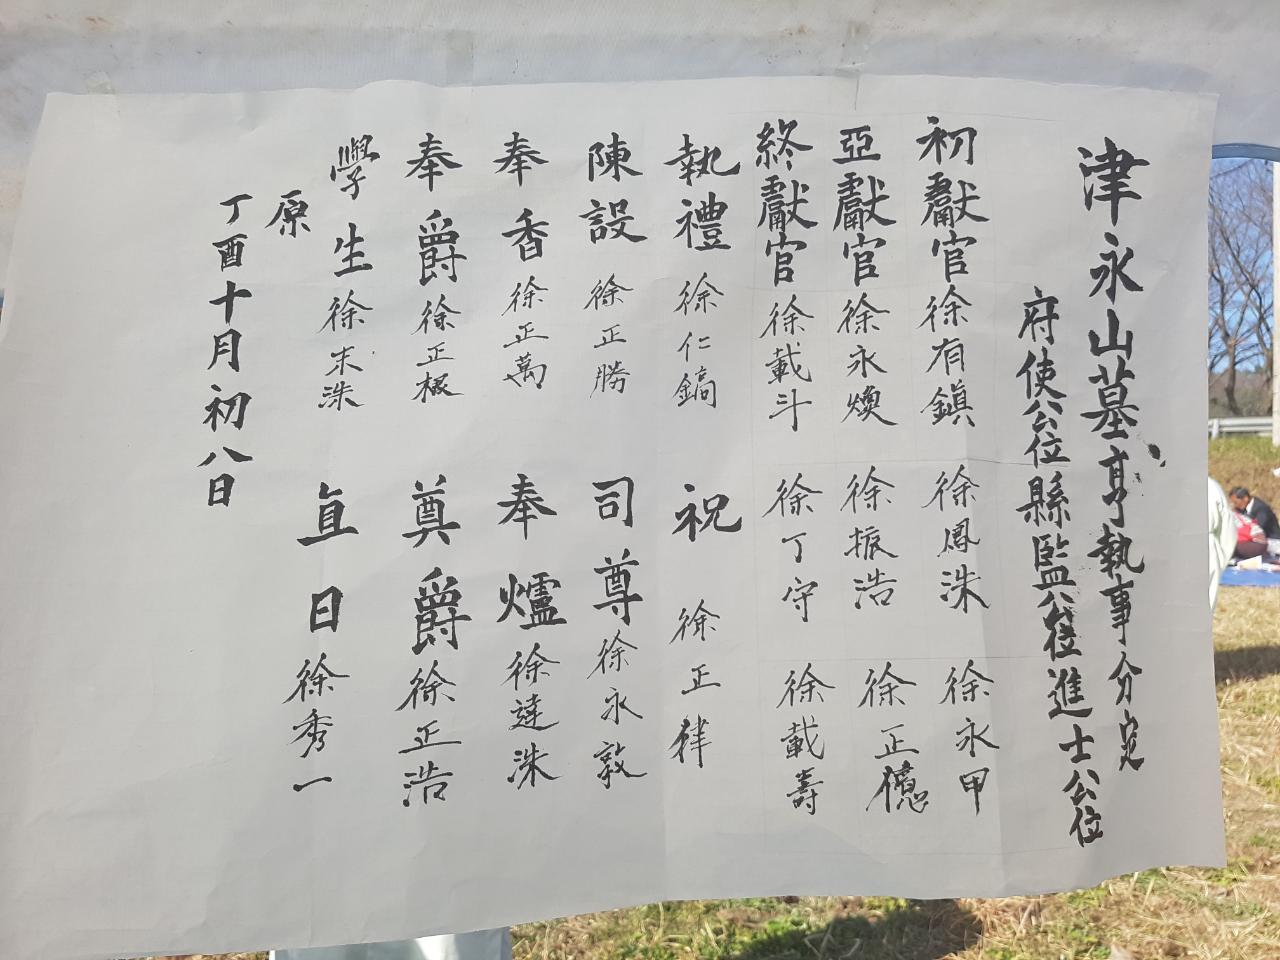 津永山墓享執事分定
府使公位 縣監公位 進士公位
初獻官 徐有鎭 徐鳳洙 徐永甲
亞獻官 徐永煥 徐振浩 徐正億
終獻官 徐載斗 徐丁守 徐載壽
執禮 徐仁鎬 祝 徐正律
陳設 徐正勝 司尊 徐永敦
奉香 徐正萬 奉爐 徐達洙
奉爵 徐正 奠爵 徐正浩
學生 徐末洙 直日 徐秀一
原
丁酉十月初八日